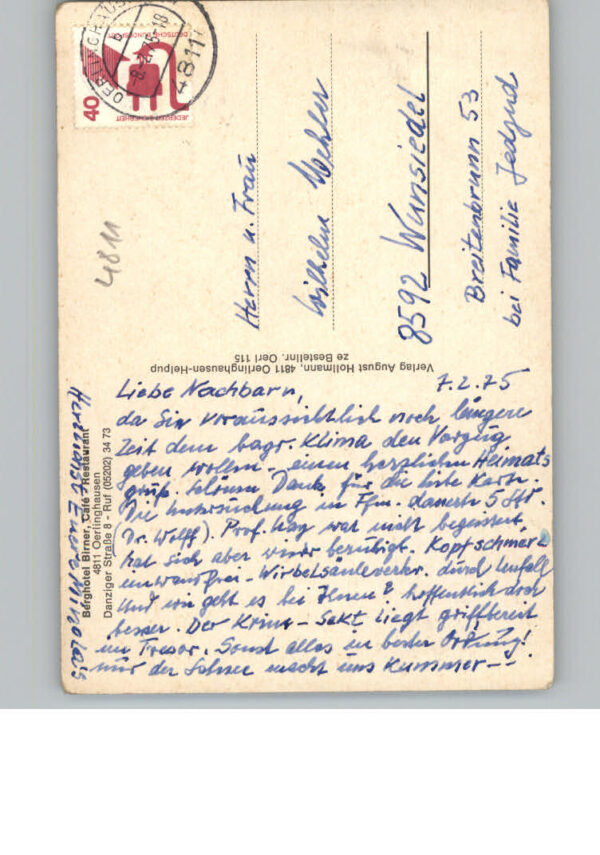 OERLINGHAUSEN
b
-8.2.75-18
4811
DEUTSCHE BUNDESPOST
JEDERZEIT SICHERHEIT
40
4811
Herrn u. Frau
Wilhelm
8592 Wunsiedel
Breitenbrunn 53
bei Familie
Verlag August Hollmann, 4811 Oerlinghausen-Helpup
ze Bestellnr. Oerl 115
Berghotel Birner, Café - Restaurant
4811 Oerlinghausen
Danziger Straße 8 - Ruf (05202) 34 73
7.2.75
Liebe Nachbarn,
da Sie voraussichtlich noch längere
Zeit dem bayr. Klima den Vorzug
geben wollen - einen herzlichen Heimats
gruß. Schönen Dank für die Karte.
Die Untersuchung in Ffm. dauerte 5 Std.
(Dr. Wolff). Prof. war nicht begeistert,
hat sich aber beruhigt. Kopfschmerz
einwandfrei - Wirbelsäulenverkr. durch Unfall
Und wie geht es bei Ihnen? hoffentlich doch
besser. Der Krim-Sekt liegt griffbereit
im Tresor. Sonst alles in bester Ordnung!
nur der Schnee macht uns Kummer--
Herzlichst Euere